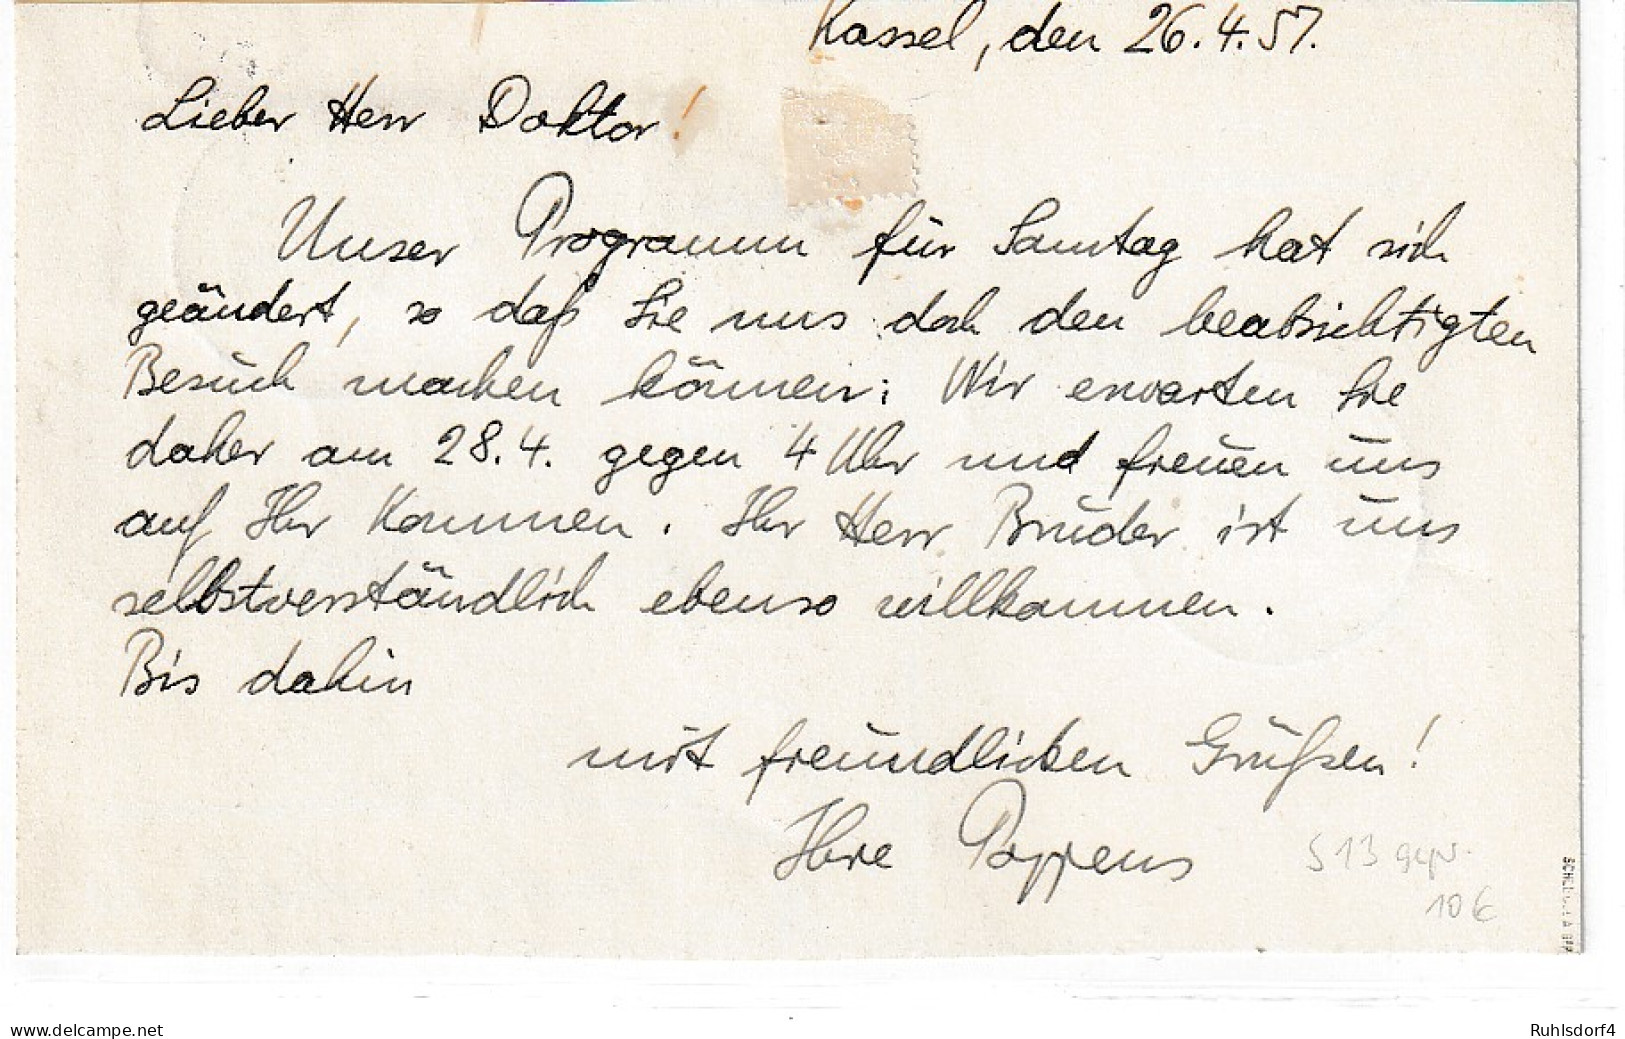 Kassel, den 26.4.51.
Lieber Herr Doktor!
Unser Programm für Samstag hat sich
geändert, so daß Sie uns doch den beabsichtigten
Besuch machen können: Wir erwarten Sie
daher am 28.4. gegen 4 Uhr und freuen uns
auf Ihr Kommen. Ihr Herr Bruder ist uns
selbstverständlich ebenso willkommen.
Bis dahin
mit freundlichen Grüßen!
Ihre Poppens
S 13 gepr.
10 €
www.delcampe.net
Ruhlsdorf4